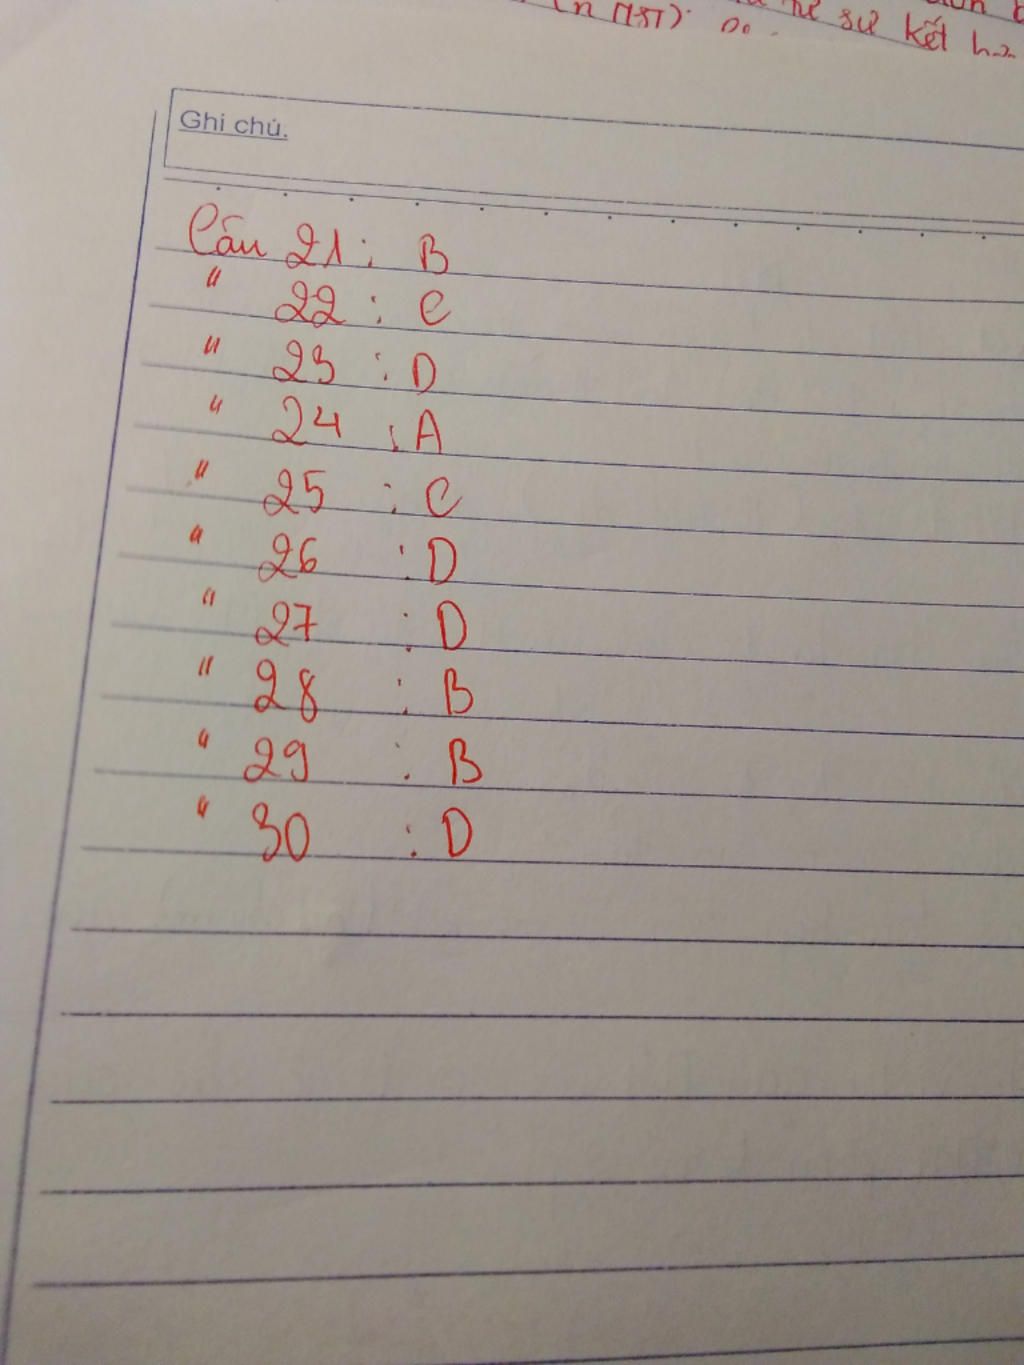 sự kết
(n NST)
Ghi chú.
Câu 21: B
" 22: C
" 23: D
" 24: A
" 25: C
" 26: D
" 27: D
" 28: B
" 29: B
" 30: D